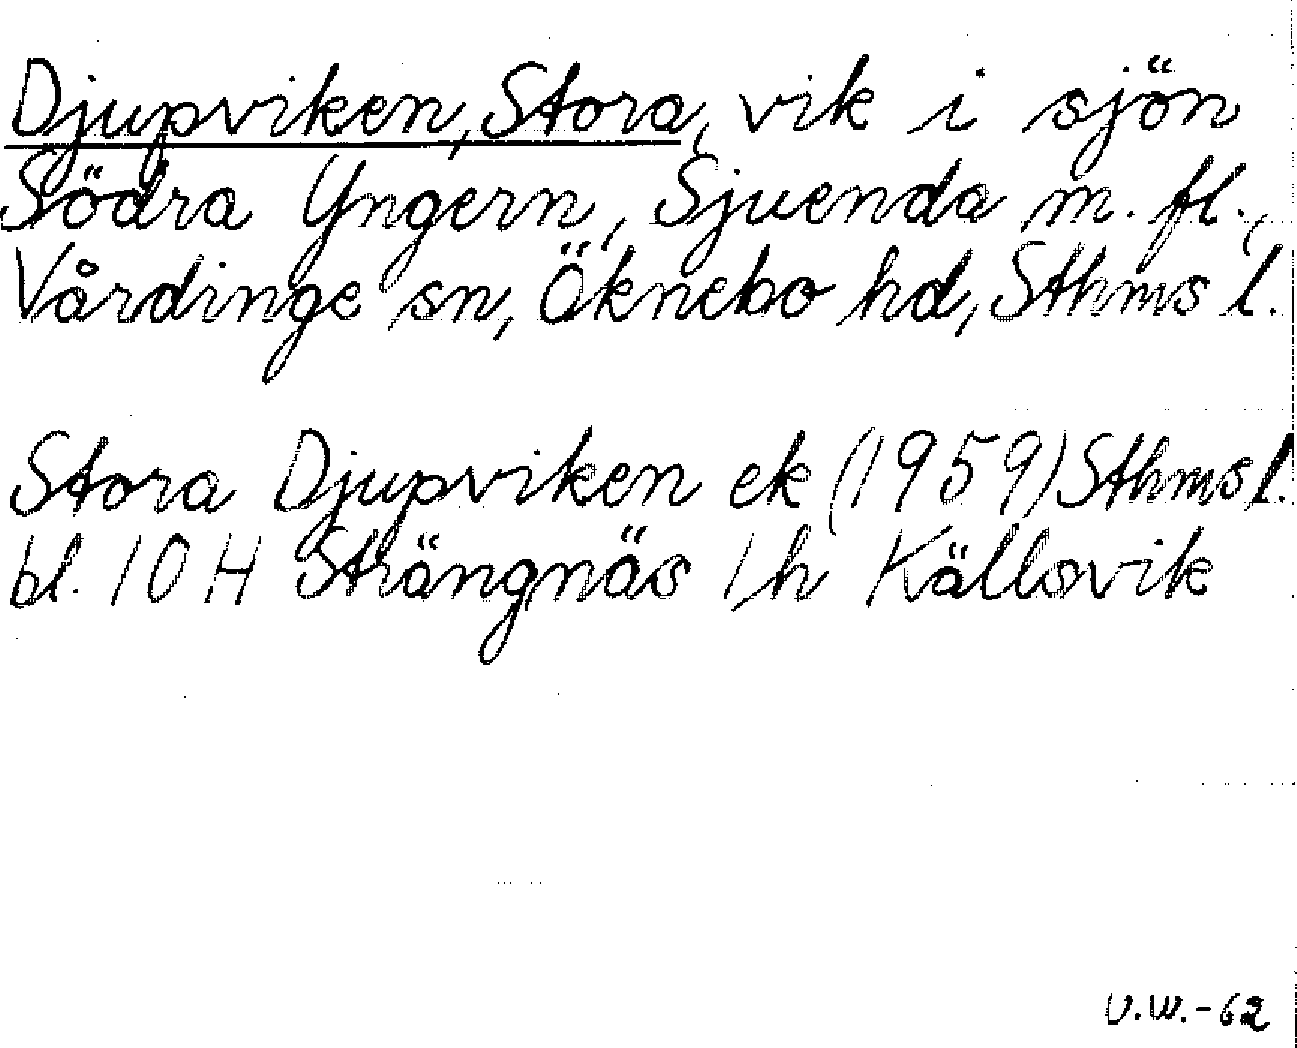 Djupviken, Stora, vik i sjön
Södra Yngern, Sjuenda m. fl.,
Vårdinge sn, Öknebo hd, Sthms l.
Stora Djupviken ek (1959) Sthms l.
bl. 10 H Strängnäs 1,h Källsvik
U.W.-62